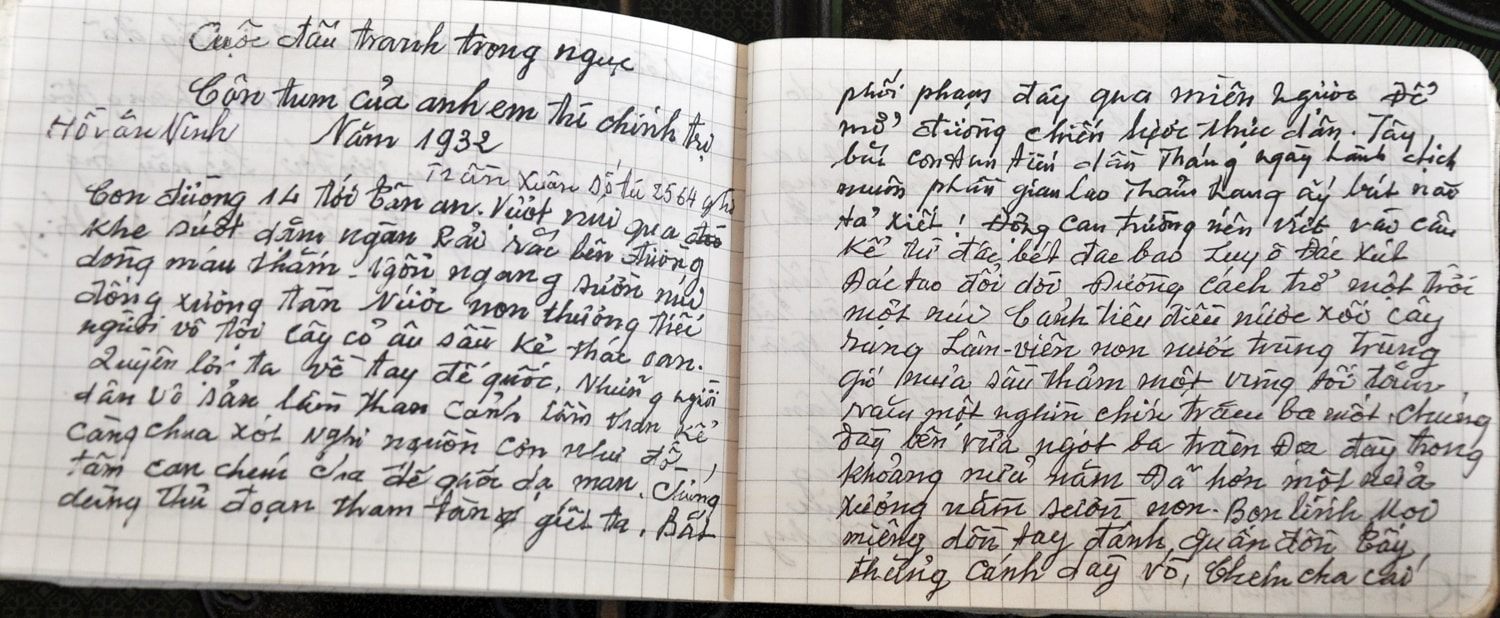 Cuộc đấu tranh trong ngục
Côn tum của anh em tù chính trị
Hồ văn Ninh Năm 1932
Trần Xuân Độ tú 2564 ghi
Con đường 14 tới Tân an. Vượt núi qua
khe suốt dặm ngàn Rải rác bên đường
dòng máu thắm - Ngổn ngang sườn núi
đống xương tàn Nước non thương tiếc
người vô tội Cây cỏ âu sầu kẻ thác oan.
Quyền lợi ta về tay đế quốc, Những người
dân vô sản lầm than Cảnh lầm than kể
càng chua xót Nghĩ nguồn cơn như đổ,
tấm can chém cha đế quốc dạ man. Chúng
dùng thủ đoạn tham tàn giết ta. Bắt
phối phạm đầy qua miền ngược Để
mở đường chiến lược thực dân. Tây,
bắt contum tiến dần Tháng ngày
muôn phần gian lao Thảm trạng ấy bút nào
tả xiết! Động can trường nên viết vào câu
Kể từ đắc bét đac bao Luy ô Đác xút
Đác tao đổi dời Đường cách trở một trời
một núi Cảnh tiêu điều nước xối cây
rung Lâm-viên non nước trùng trùng
gió mưa sầu thảm một vùng tối tăm
năm một nghìn chín trăm ba mốt. Chúng
đầy bên vừa ngót ba trăm Đoạ đầy trong
khoảng nửa năm Đã hơn một nửa
xương nằm sườn non. Bọn lính Mọi
miệng dồn tay đánh, Quan đồn Tây,
thẳng cánh đầy vò, Chém cha cái